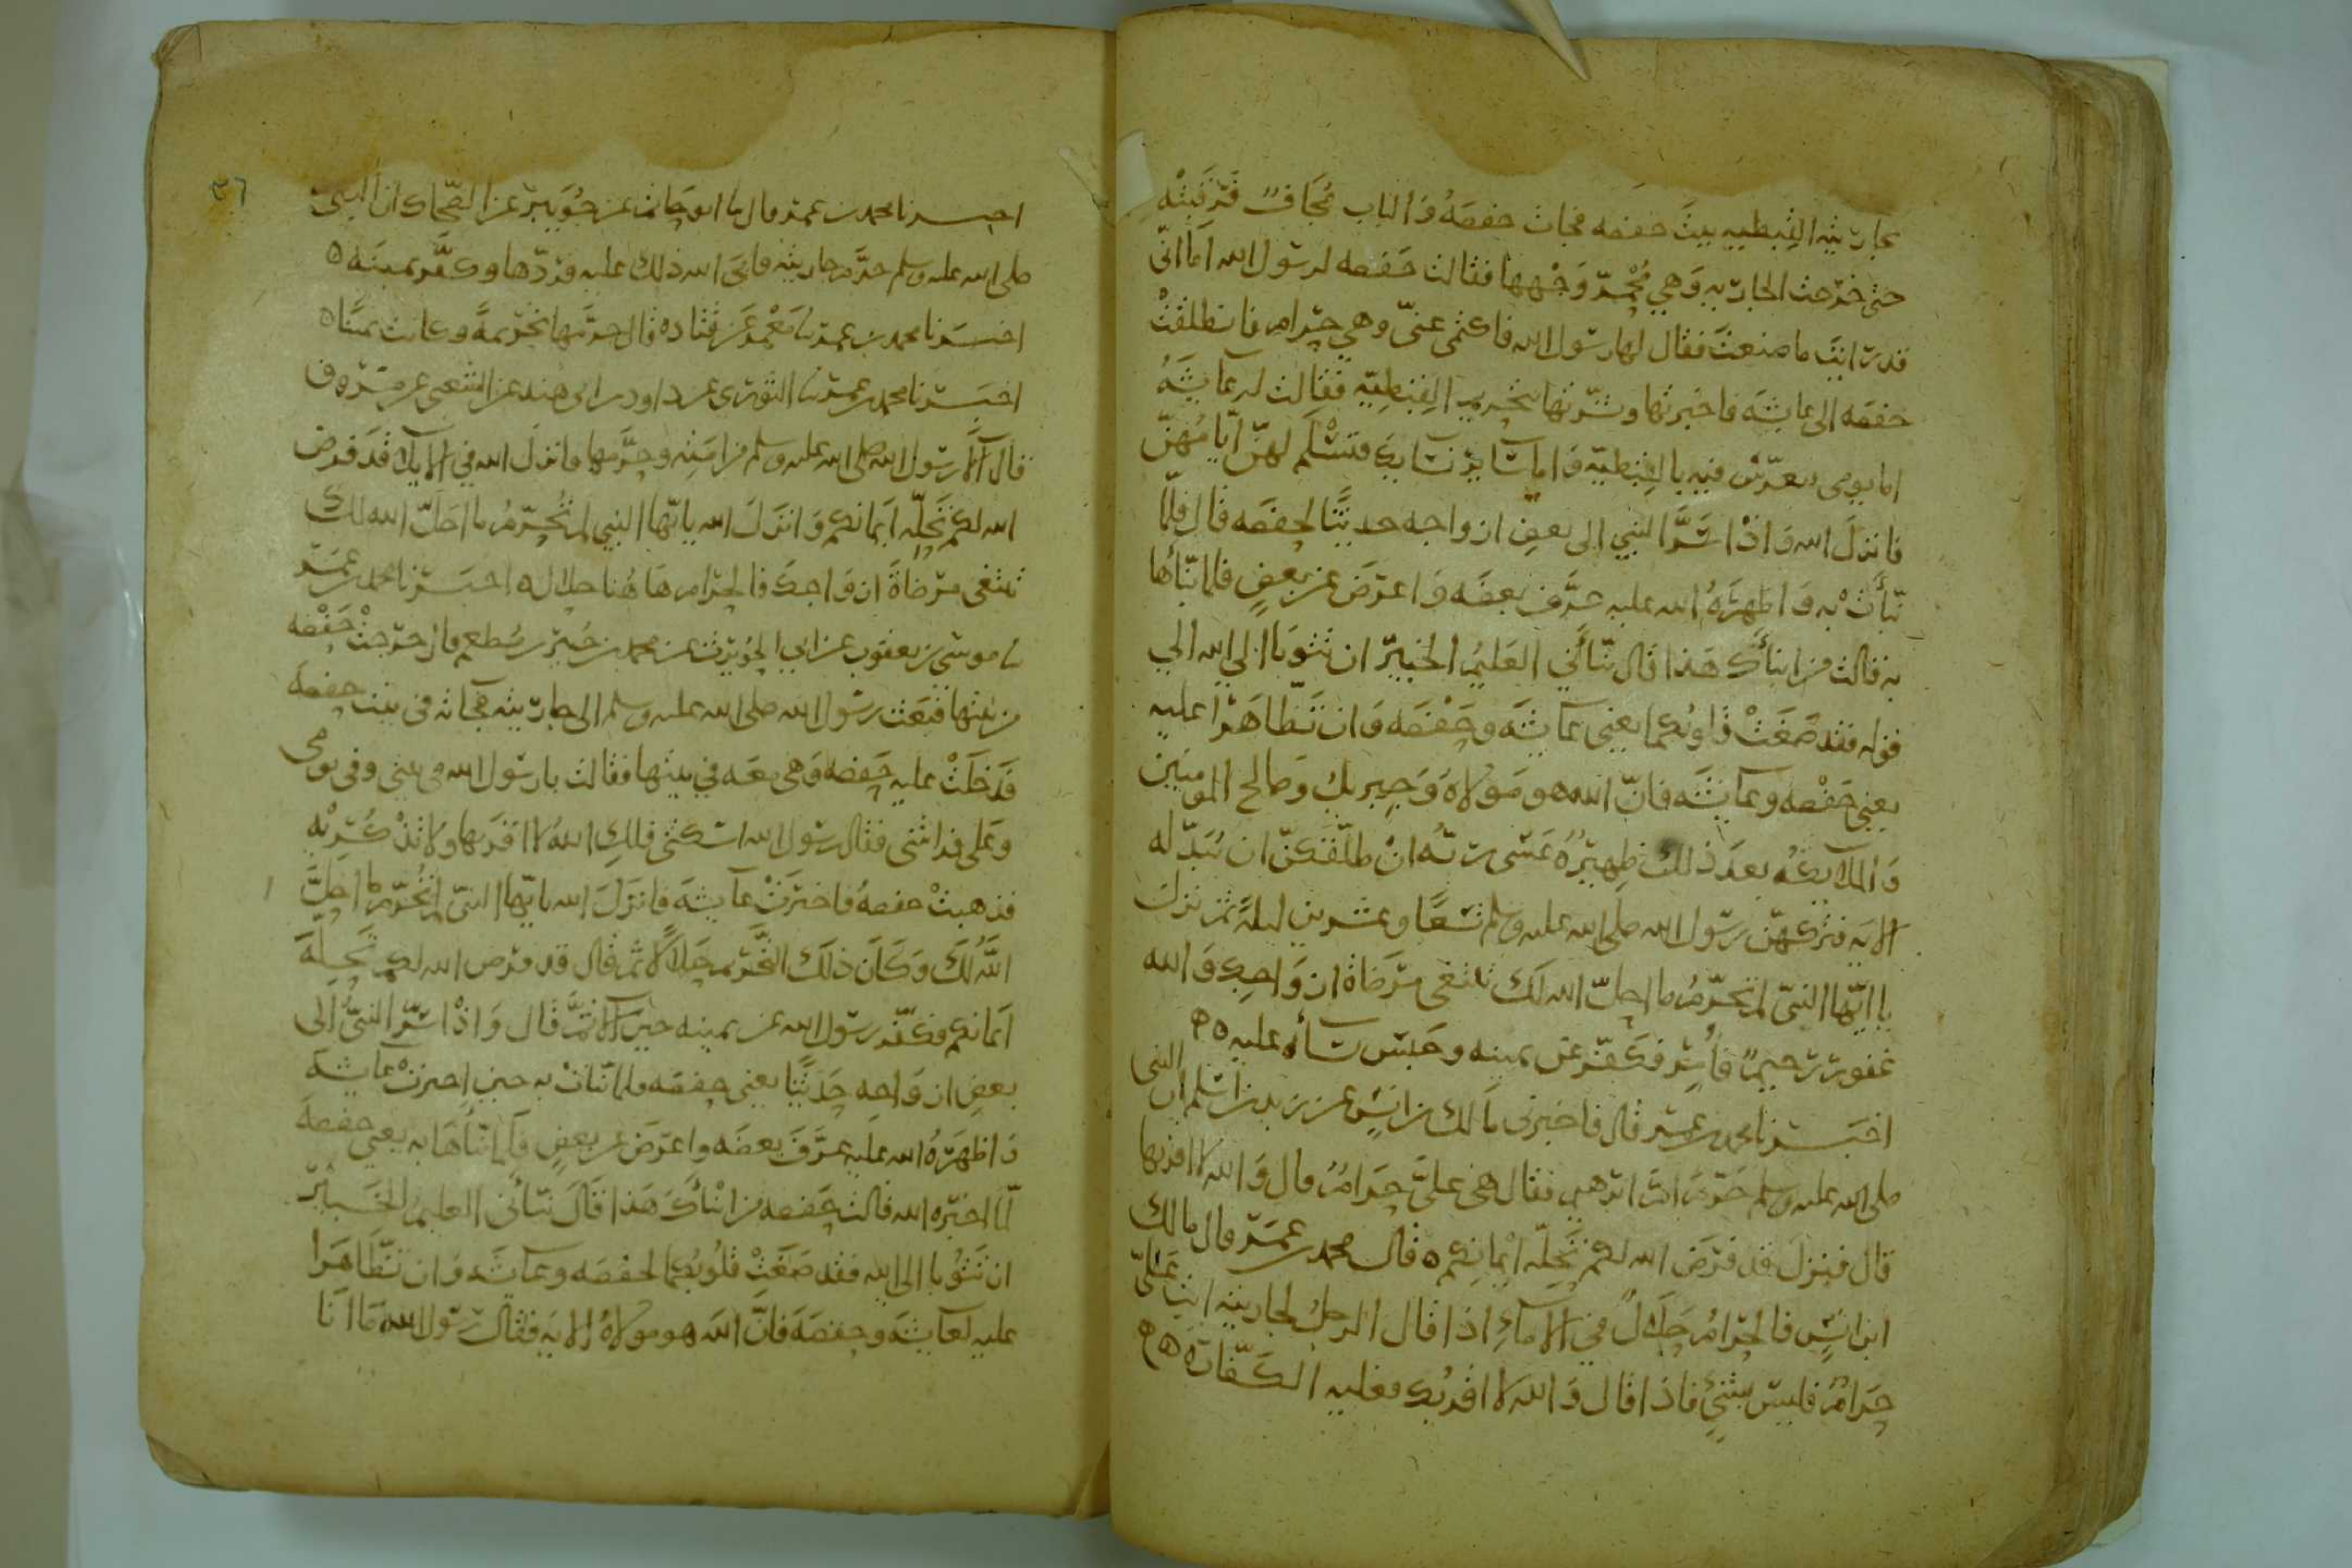 بجاريته القبطيه بيت حفصه فجات حفصه والباب مجاف فرقبته
حتى خرجت الجاريه وهي وجهها فقالت حفصه لرسول الله اما اني
قد رايت ما صنعت فقال لها رسول الله فاكتمى عني وهي حرام فانطلقت
حفصه الى عايشه فاخبرتها وبشرتها بتحريم القبطيه فقالت له عايشه
اما يومى فتعرس فيه بالقبطيه واما ساير نسايك فتسلم لهن ايامهن
فانزل الله واذ اسر النبي الى بعض ازواجه حديثا لحفصه قال فلما
نبأت به واظهره الله عليه عرف بعضه واعرض عن بعض فلما نبأها
به قالت من انبأك هذا قال نبأني العليم الخبير ان تتوبا الى الله الي
قوله فقد صغت قلوبكما يعني عايشه وحفصه وان تظاهرا عليه
يعني حفصه وعايشه فان الله هو مولاه وجبريل وصالح المومنين
والملايكه بعد ذلك ظهير عسى ربه ان طلقكن ان يبدله
الايه فتركهن رسول الله صلى الله عليه وسلم تسعا وعشرين ليله ثم نزل
يا ايها النبي لم تحرم ما احل الله لك تبتغى مرضاة ازواجك والله
غفور رحيم فأمر فكفر عن يمينه وحبس نساءه عليه
اخبرنا محمد بن عمر قال فاخبرنى مالك بن انس عن زيد بن اسلم ان النبى
صلى الله عليه وسلم حرم ام ابرهيم فقال هى على حرام قال والله لا اقربها
قال فنزل قد فرض الله لكم تحلة ايمانكم قال محمد بن عمر قال مالك
ابن انس فالحرام حلال في الاماء اذا قال الرجل لجاريته انت علي
حرام فليس بشيء فاذا قال والله لا اقربك فعليه الكفارة
٣٦
اخبرنا محمد بن عمر قال نا ابو حاتم عن جويبر عن الضحاك ان النبى
صلى الله عليه وسلم حرم جاريته فابى الله ذلك عليه فردها وكفر يمينه
اخبرنا محمد بن عمر نا معمر عن قتاده قال حرمها تحريمة وكانت يمينا
اخبرنا محمد بن عمر نا الثورى عن داود بن ابى هند عن الشعبى عن مسروق
قال آلا رسول الله صلى الله عليه وسلم من امته وحرمها فانزل الله في الايلا قد فرض
الله لكم تحلة ايمانكم وانزل الله يا ايها النبي لم تحرم ما احل الله لك
تبتغى مرضاة ازواجك فالحرام هاهنا حلال اخبرنا محمد بن عمر
نا موسى بن يعقوب عن ابي الحويرث عن محمد بن جبير بن مطعم قال خرجت حفصه
من بيتها فبعث رسول الله صلى الله عليه وسلم الى جاريته فجاته فى بيت حفصه
فدخلت عليه حفصه وهى معه في بيتها فقالت يا رسول الله في بيتى وفى يومى
وعلى فراشى فقال رسول الله اسكتى فلك الله لا اقربها ولا تذكريه
فذهبت حفصه فاخبرت عايشه فانزل الله يا ايها النبى لم تحرم ما احل
الله لك وكان ذلك التحريم حلالا ثم قال قد فرض الله لكم تحلة
ايمانكم فكفر رسول الله عن يمينه حين آلا ثم قال واذ اسر النبى الى
بعض ازواجه حديثا يعني حفصه فلما نبات به حين اخبرت عايشه
واظهره الله عليه عرف بعضه واعرض عن بعض فلما نبأها به يعني حفصة
لما اخبره الله قالت حفصه من انبأك هذا قال نبأنى العليم الخبير
ان تتوبا الى الله فقد صغت قلوبكما لحفصه وعايشه وان تظاهرا
عليه لعايشه وحفصه فان الله هو مولاه الايه فقال رسول الله ما انا